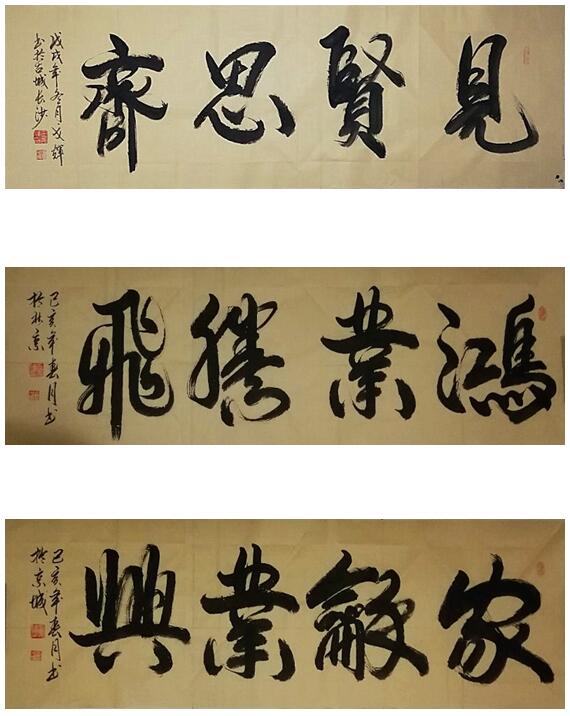 見賢思齊
戊戌年冬月文輝
书於古城长沙
鴻業騰飛
己亥年春月书
於北京
家龢業興
己亥年春月书
於京城